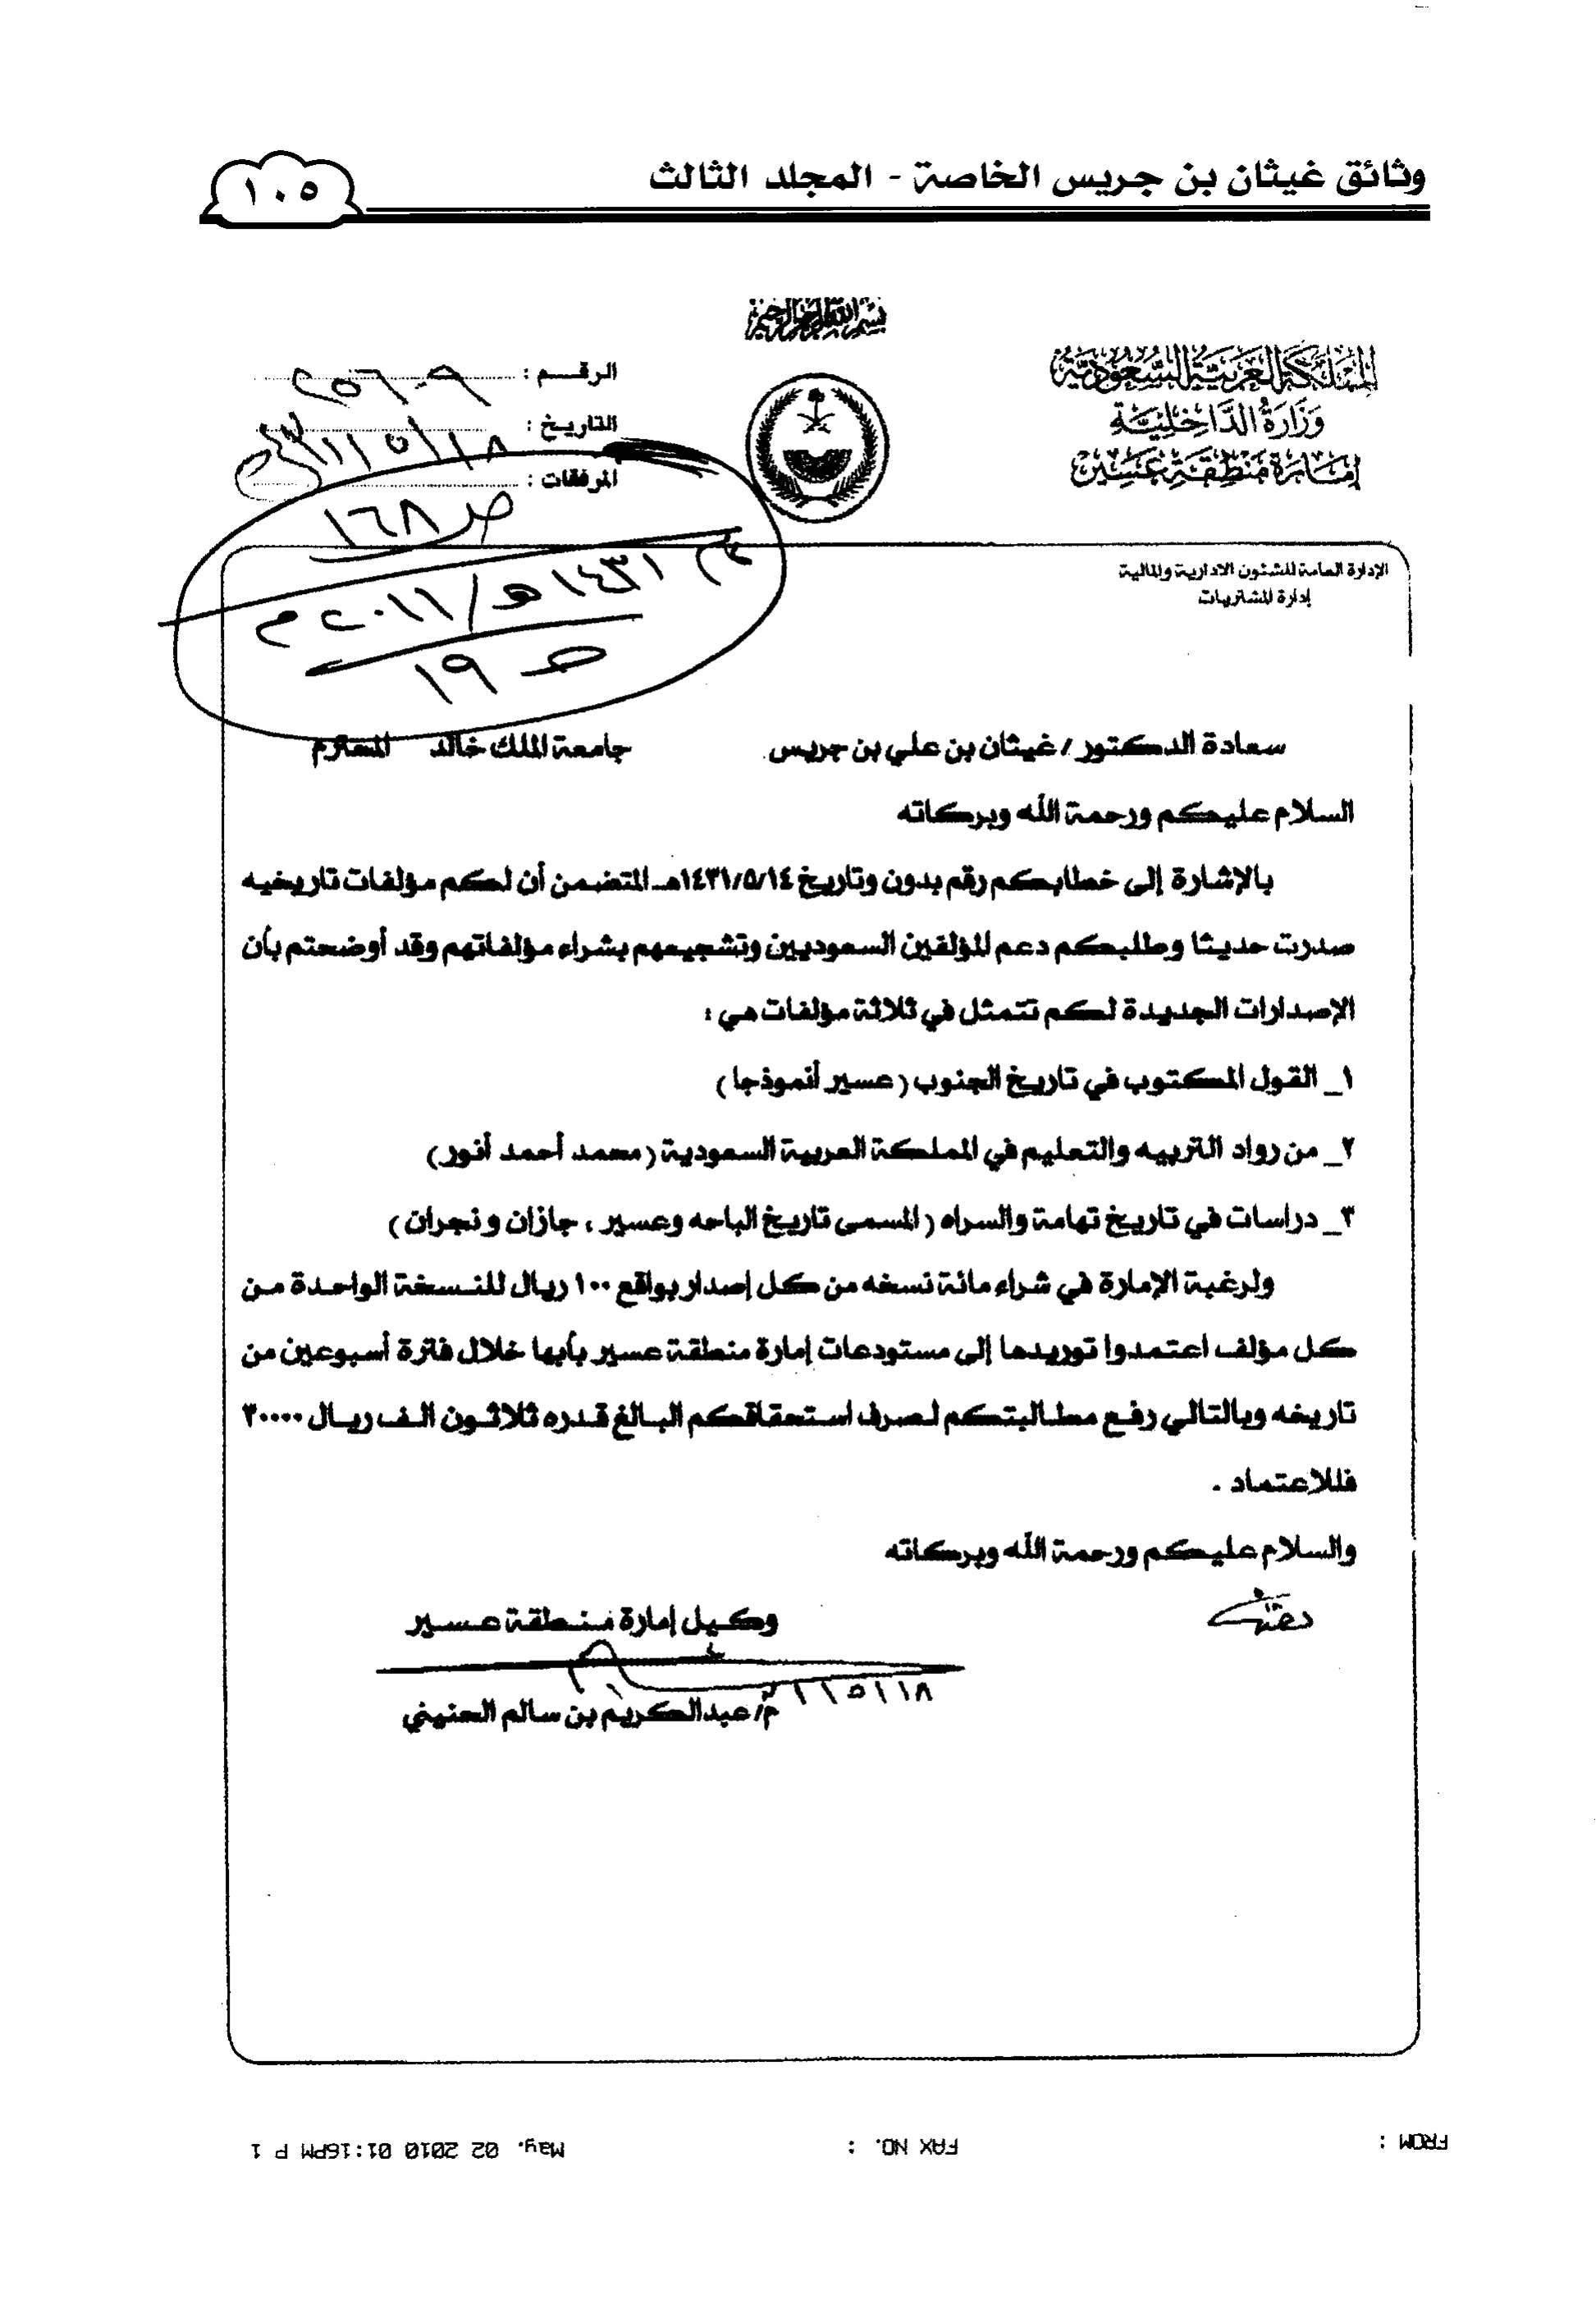 وثائق غيثان بن جريس الخاصة - المجلد الثالث
١٠٥
بسم الله الرحمن الرحيم
المملكة العربية السعودية
وزارة الداخلية
إمارة منطقة عسير
الرقم : ٢٥٦٠٩
التاريخ : ١٨/٥/١٤٣١هـ
المرفقات :
ص ١٦٨
١٤٣١هـ/٢٠١١م
ص ١٩
الإدارة العامة للشئون الادارية والمالية
إدارة المشتريات
سعادة الدكتور / غيثان بن علي بن جريس جامعة الملك خالد المحترم
السلام عليكم ورحمة الله وبركاته
بالإشارة إلى خطابكم رقم بدون وتاريخ ١٤٣١/٥/١٤هـ المتضمن أن لكم مؤلفات تاريخيه
صدرت حديثا وطلبكم دعم المؤلفين السعوديين وتشجيعهم بشراء مؤلفاتهم وقد أوضحتم بأن
الإصدارات الجديدة لكم تتمثل في ثلاثة مؤلفات هي :
١_ القول المكتوب في تاريخ الجنوب ( عسير أنموذجا )
٢_ من رواد التربيه والتعليم في المملكة العربية السعودية ( محمد أحمد أنور )
٣_ دراسات في تاريخ تهامة والسراه ( المسمى تاريخ الباحه وعسير ، جازان ونجران )
ولرغبة الإمارة في شراء مائة نسخه من كل إصدار بواقع ١٠٠ ريال للنسخة الواحدة من
كل مؤلف اعتمدوا توريدها إلى مستودعات إمارة منطقة عسير بأبها خلال فترة أسبوعين من
تاريخه وبالتالي رفع مطالبتكم لصرف استحقاقكم البالغ قدره ثلاثون الف ريال ٣٠٠٠٠
فللاعتماد .
والسلام عليكم ورحمة الله وبركاته
وكيل إمارة منطقة عسير
١٨/٥/
م/ عبدالكريم بن سالم الحنيني
FROM :
FAX NO. :
May. 02 2010 01:16PM P 1